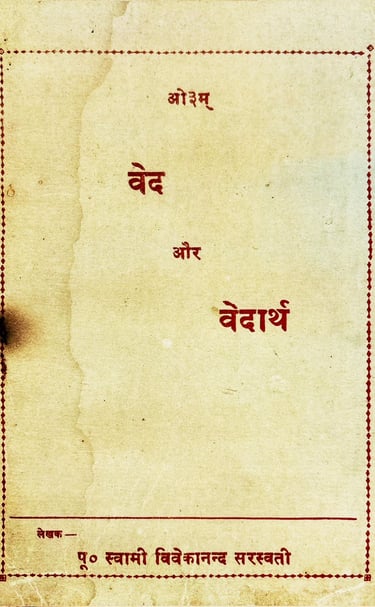 ओ३म्
वेद
और
वेदार्थ
लेखक —
पू० स्वामी विवेकानन्द सरस्वती